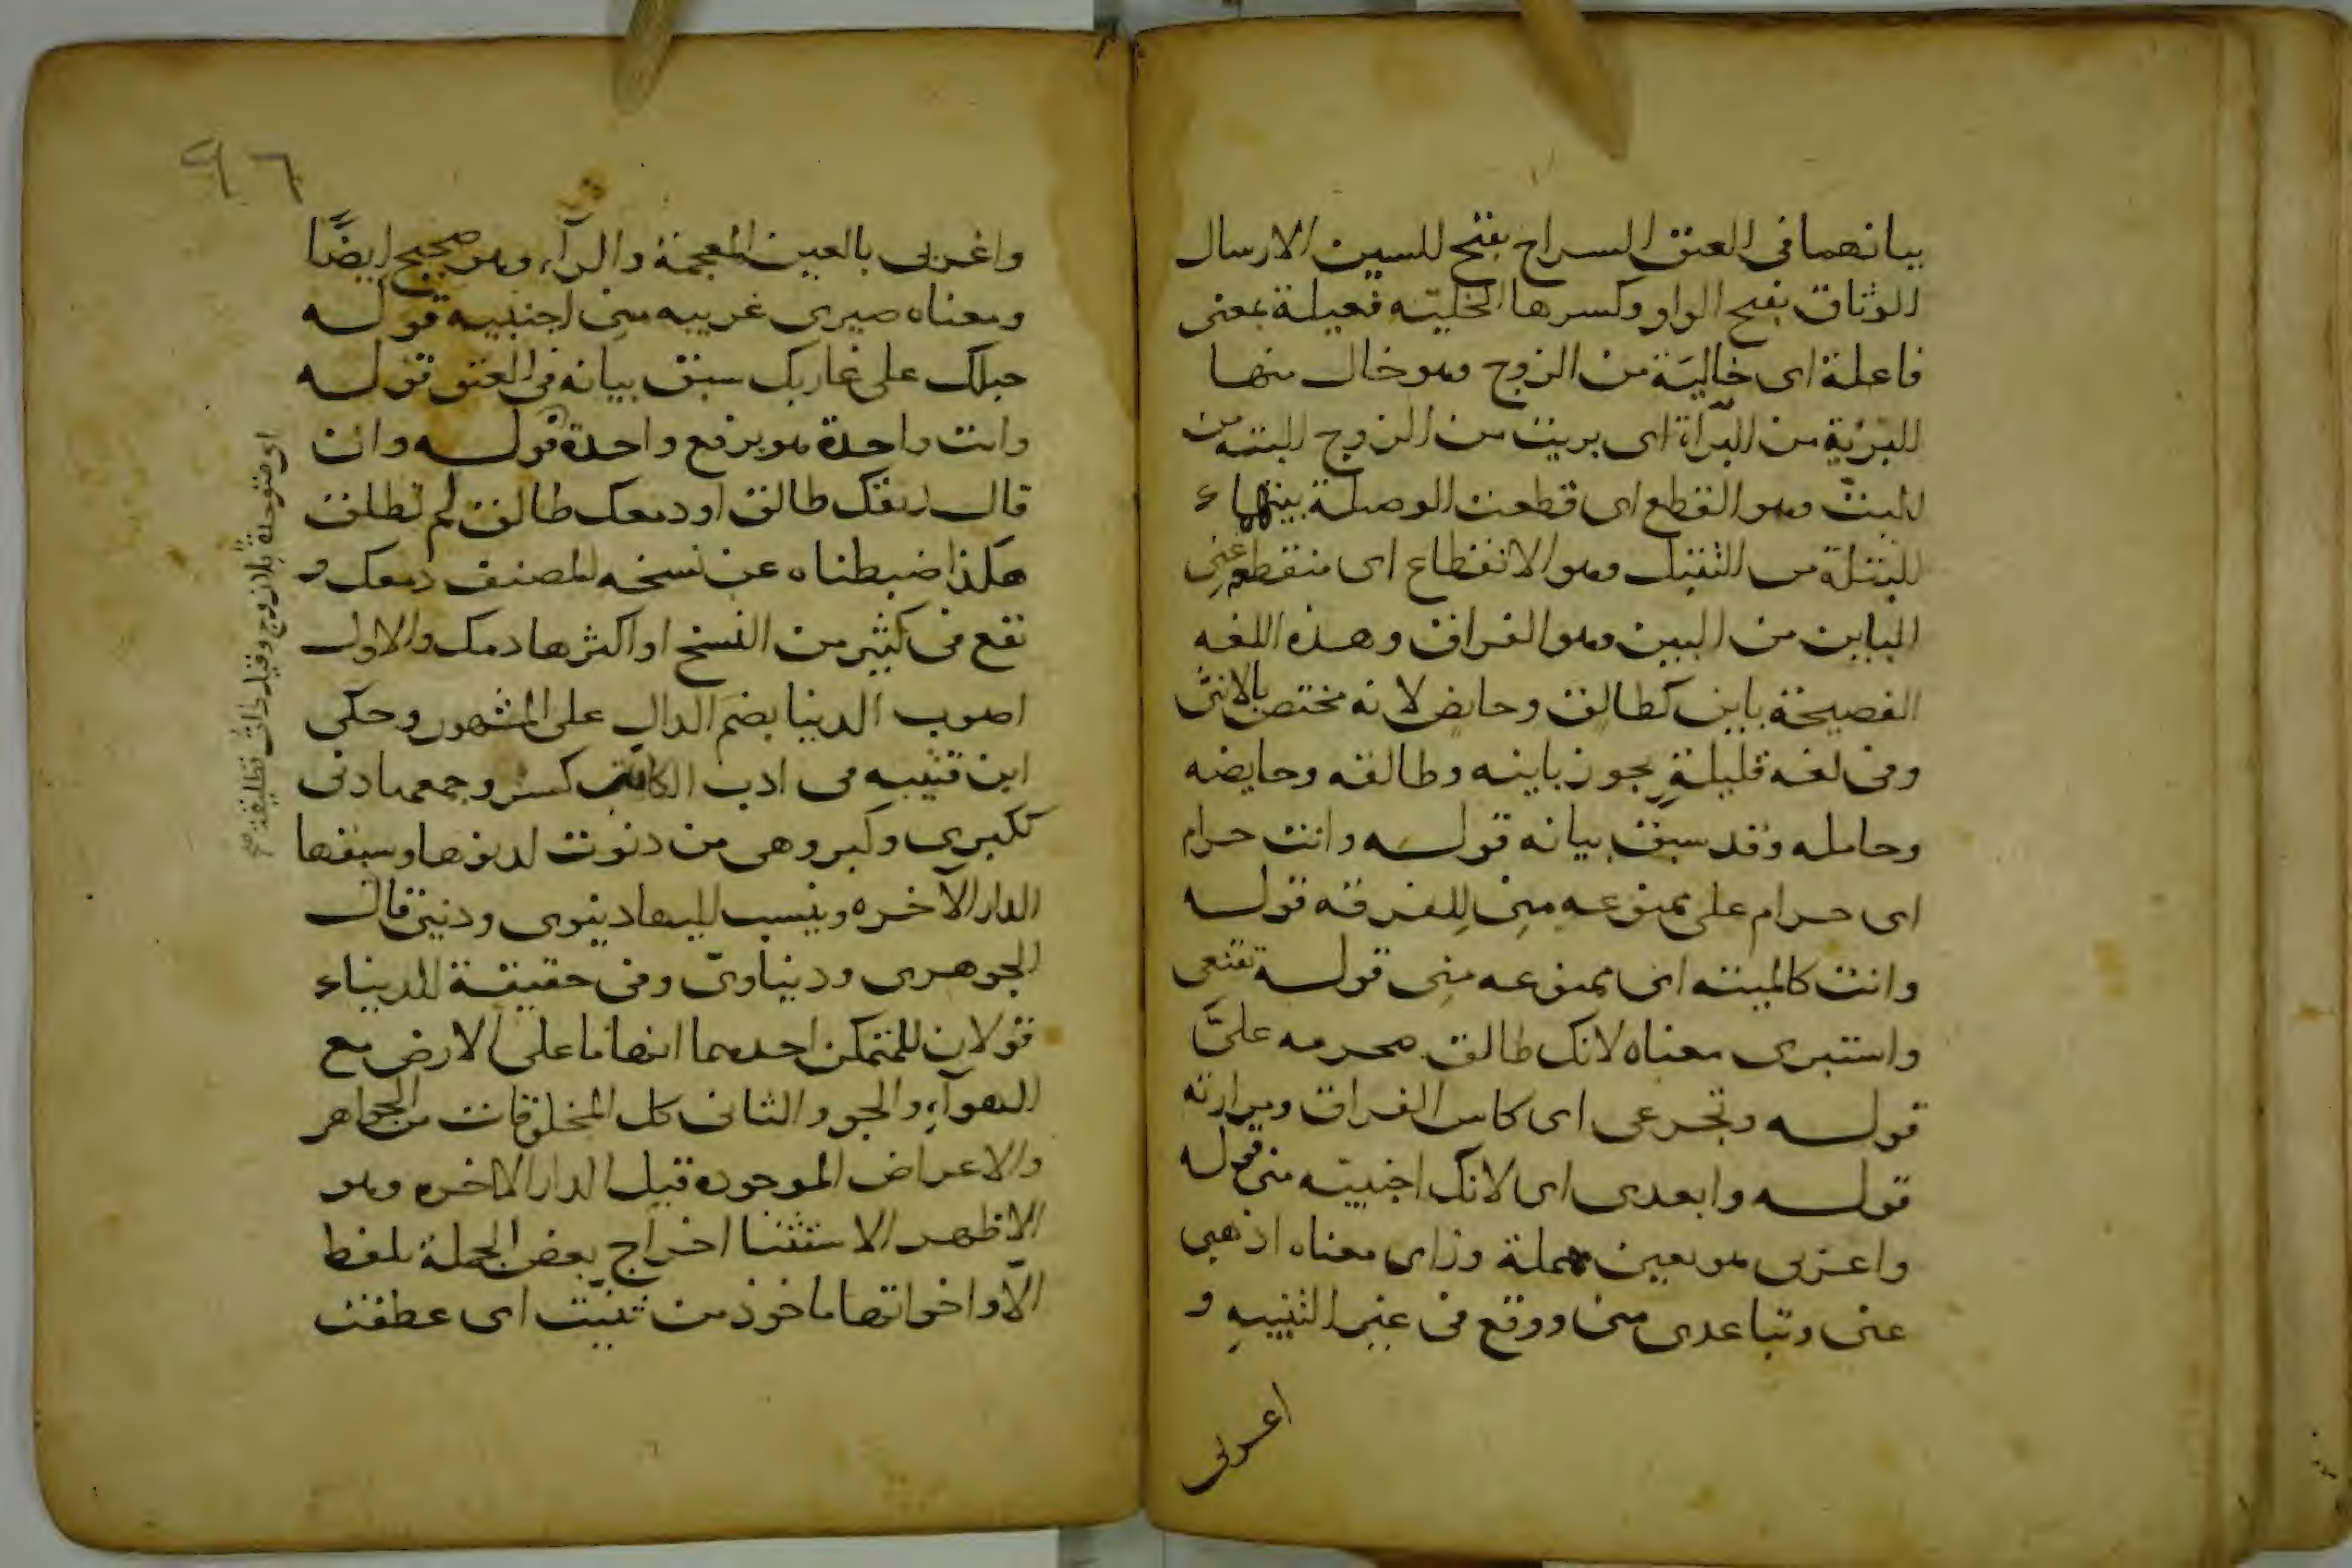 بيانهما في العتق السراح بفتح السين الارسال
الوثاق بفتح الواو وكسرها الخلية فعيلة بمعنى
فاعلة اى خالية من الزوج وهو خال منها
البرية من البرآة اى بريت من الزوج البتة من
البت وهو القطع اى قطعت الوصلة بينهما
البتلة من التبتيل وهو الانقطاع اى منقطعه عنى
الباين من البين وهو الفراق وهذه اللغه
الفصيحة باين كطالق وحايض لانه مختص بالانثى
وفى لغه قليلة يجوز باينه وطالقه وحايضه
وحامله وقد سبق بيانه قوله وانت حرام
اى حرام على ممنوعه منى للفرقه قوله
وانت كالميته اى ممنوعه منى قوله تقنعى
واستبرى معناه لانك طالق محرمه علىَّ
قوله وتجرعى اى كاس الفراق ومرارته
قوله وابعدى اى لانك اجنبيه منى قوله
واعزبى هو بعين مهملة وزاى معناه اذهبى
عنى وتباعدى منى ووقع فى غير التنبيه و
اغربى
٩٦
واغربى بالغين المعجمة والرآء وهو صحيح ايضًا
ومعناه صيرى غريبه منى اجنبيه قوله
حبلك على غاربك سبق بيانه فى العتق قوله
وانت واحدة هو برفع واحدة قوله وان
قال ريقك طالق او دمعك طالق لم تطلق
هكذا ضبطناه عن نسخه المصنف دمعك و
تقع فى كثير من النسخ او اكثرها دمك والاول
اصوب الدنيا بضم الدال على المشهور وحكى
ابن قتيبه فى ادب الكاتب كسر وجمعها دنى
ككبرى وكبر وهى من دنوت لدنوها وسبقها
الدار الآخره وينسب اليها دنيوى ودنيى قال
الجوهرى ودنياوىّ وفى حقيقة الدنيا
قولان للمتمكن احدهما انها ما على الارض مع
الهوآء والجو والثانى كل المخلوقات من الجواهر
والاعراض الموجوده قبل الدار الاخره وهو
الاظهر الاستثنا اخراج بعض الجملة بلفظ
الّا واخواتها ماخوذ من ثنيت اى عطفت
اى متوحدة بلا زوج وقيل ذات تطليقة صح